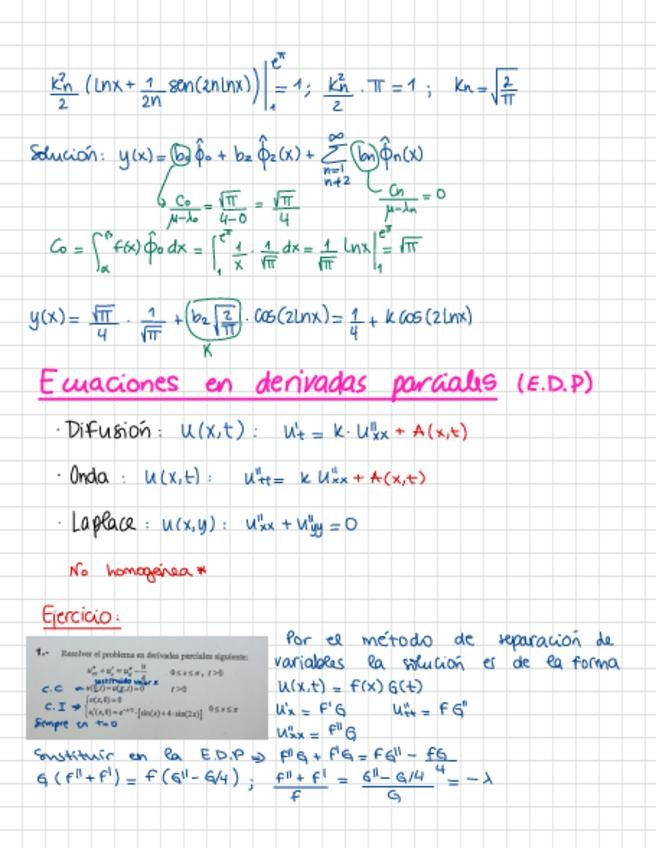 Kn²/2 (Lnx + 1/2n sen(2nlnx)) |₁^e^π = 1; Kn²/2 · π = 1; Kn = √(2/π)
Solución: y(x) = b₀ φ̂₀ + b₂ φ̂₂(x) + Σ_{n=1, n≠2}^∞ bn φ̂n(x)
C₀/(μ-λ₀) = √π/(4-0) = √π/4
Cn/(μ-λn) = 0
C₀ = ∫_α^β f(x) φ̂₀ dx = ∫₁^e^π 1/x · 1/√π dx = 1/√π lnx |₁^e^π = √π
y(x) = √π/4 · 1/√π + b₂ √(2/π) · cos(2lnx) = 1/4 + k cos(2lnx)
K
Ecuaciones en derivadas parciales (E.D.P)
· Difusión: u(x,t): u't = k· u''xx + A(x,t)
· Onda: u(x,t): u''tt = k u''xx + A(x,t)
· Laplace: u(x,y): u''xx + u''yy = 0
No homogénea *
Ejercicio:
1.- Resolver el problema en derivadas parciales siguiente:
0≤x≤π, t>0
sustituido valor x
C.C → t>0
C.I → u(x,0)=0
[sin(x)+4·sin(2x)] 0≤x≤π
Siempre en t=0
Por el método de separación de
variables la solución es de la forma
u(x,t) = f(x) G(t)
u'x = f'G u''tt = f G''
u''xx = f''G
Sustituir en la E.D.P → f''G + f'G = fG'' - fG/4
G(f''+f') = f(G''-G/4); (f''+f')/f = (G''-G/4)/G = -λ